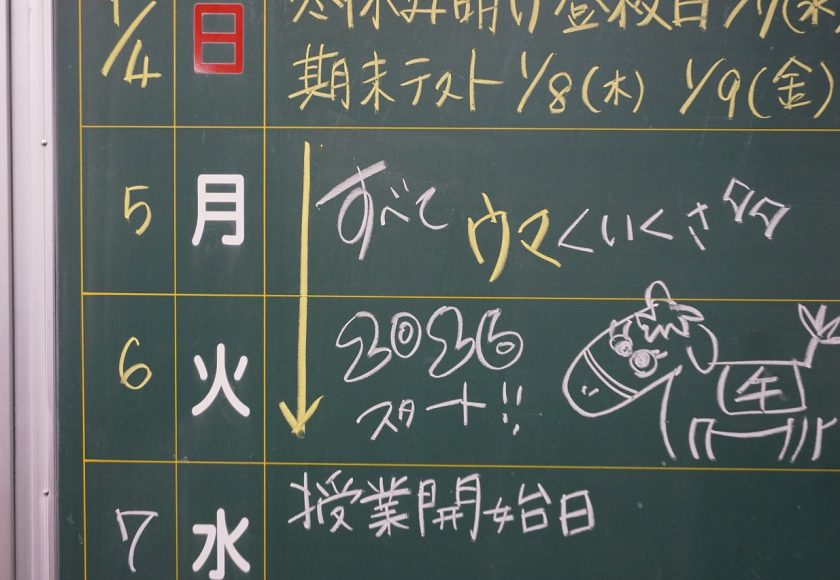 1/4 日 冬休み明け登校日 1/7(水)
期末テスト 1/8(木) 1/9(金)
5 月 すべてウマくいくさ♫
6 火 2026
スタート!!
午
7 水 授業開始日